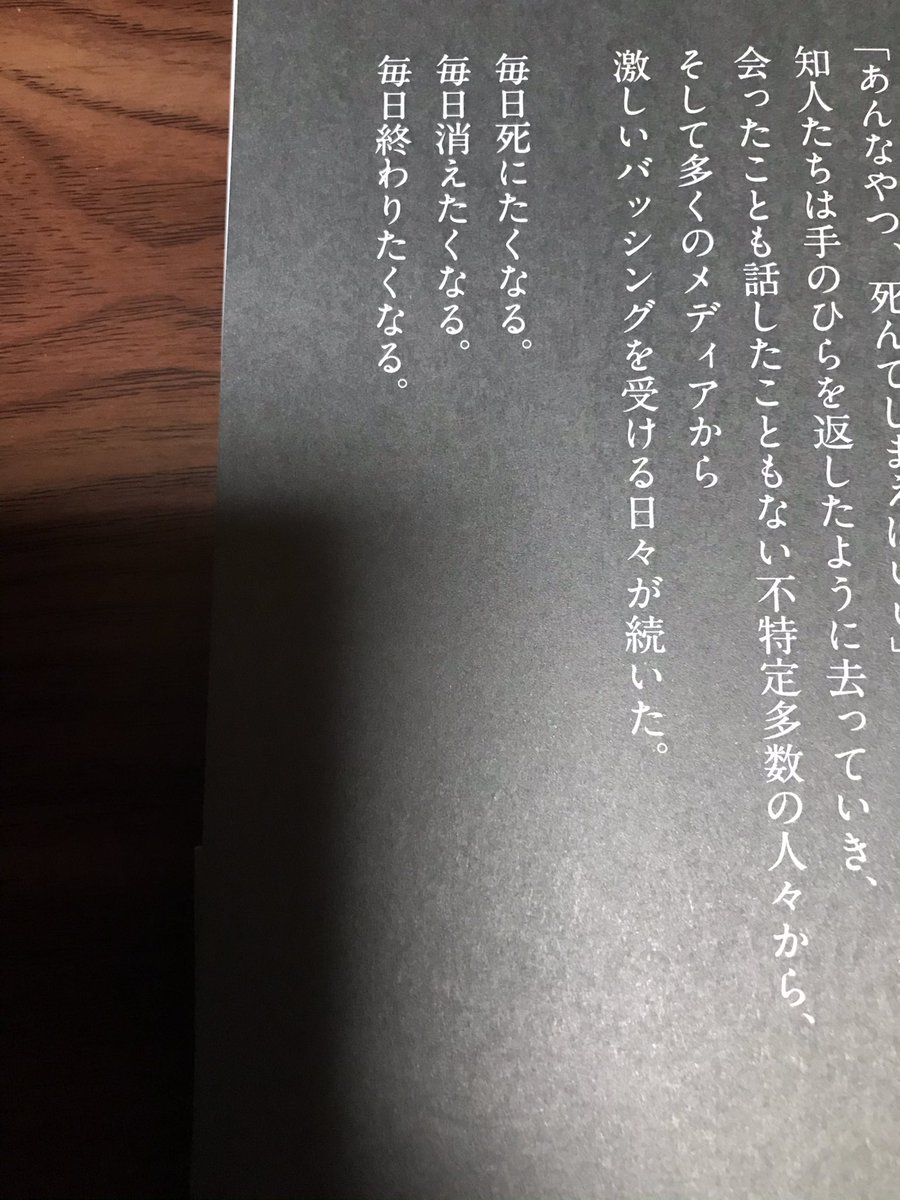 「あんなやつ、死んでしまえばいい」
知人たちは手のひらを返したように去っていき、
会ったことも話したこともない不特定多数の人々から、
そして多くのメディアから
激しいバッシングを受ける日々が続いた。
毎日死にたくなる。
毎日消えたくなる。
毎日終わりたくなる。